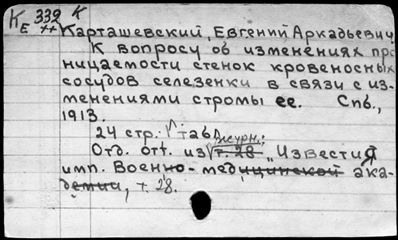 К 339 К
Е ++ Карташевский, Евгений Аркадьевич.
К вопросу об изменениях про
ницаемости стенок кровеносных
сосудов селезенки в связи с из-
менениями стромы ее. Спб.,
1913.
24 стр. 1 табл.
журн.:
Отд. отт. из т. 28 "Известия
имп. Военно-медицинской ака-
демии, т. 28.